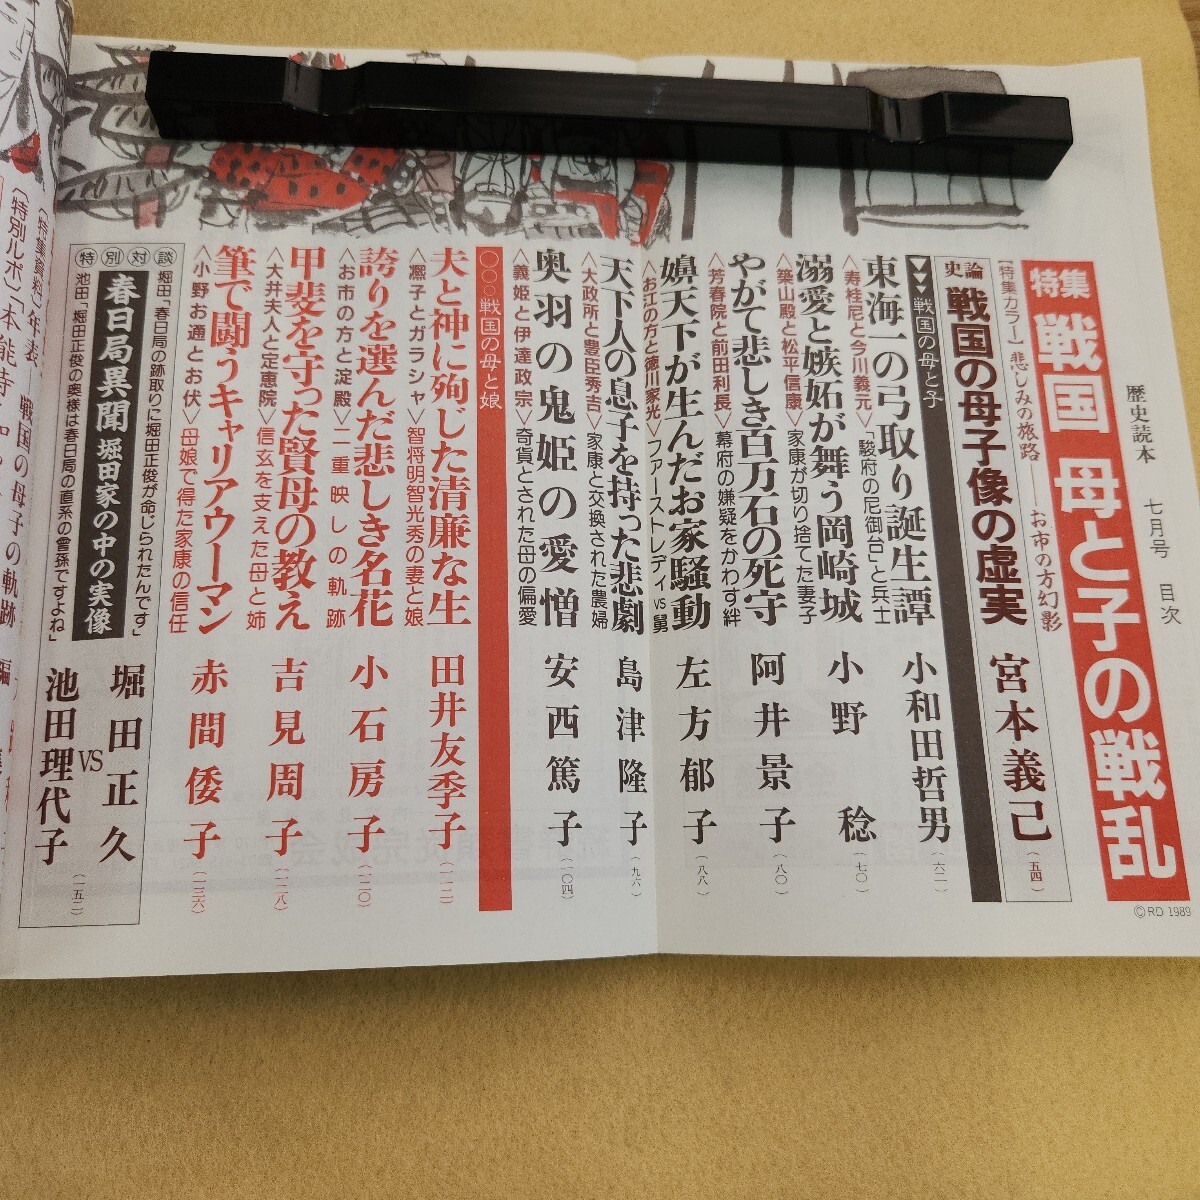 歴史読本 七月号 目次
特集 戦国 母と子の戦乱
©RD 1989
[特集カラー] 悲しみの旅路——お市の方幻影
史論 戦国の母子像の虚実 宮本義己 (五四)
▼▼▼戦国の母と子
東海一の弓取り誕生譚 小和田哲男 (六二)
<寿桂尼と今川義元>「駿府の尼御台」と兵士
溺愛と嫉妬が舞う岡崎城 小野稔 (七〇)
<築山殿と松平信康>家康が切り捨てた妻子
やがて悲しき百万石の死守 阿井景子 (八〇)
<芳春院と前田利長>幕府の嫌疑をかわす絆
嬶天下が生んだお家騒動 左方郁子 (八八)
<お江の方と徳川家光>ファーストレディvs舅
天下人の息子を持った悲劇 島津隆子 (九六)
<大政所と豊臣秀吉>家康と交換された農婦
奥羽の鬼姫の愛憎 安西篤子 (一〇四)
<義姫と伊達政宗>奇貨とされた母の偏愛
○○○戦国の母と娘
夫と神に殉じた清廉な生 田井友季子 (一一二)
<凞子とガラシャ>智将明智光秀の妻と娘
誇りを選んだ悲しき名花 小石房子 (一二〇)
<お市の方と淀殿>二重映しの軌跡
甲斐を守った賢母の教え 吉見周子 (一二八)
<大井夫人と定恵院>信玄を支えた母と姉
筆で闘うキャリアウーマン 赤間倭子 (一三六)
<小野お通とお伏>母娘で得た家康の信任
特別対談
堀田「春日局の跡取りに堀田正俊が命じられたんです」
春日局異聞 堀田家の中の実像
池田「堀田正俊の奥様は春日局の直系の曾孫ですよね」
堀田正久
VS
池田理代子 (一五二)
[特集資料] 年表——戦国の母子の軌跡 編
[特別ルポ]「本能寺